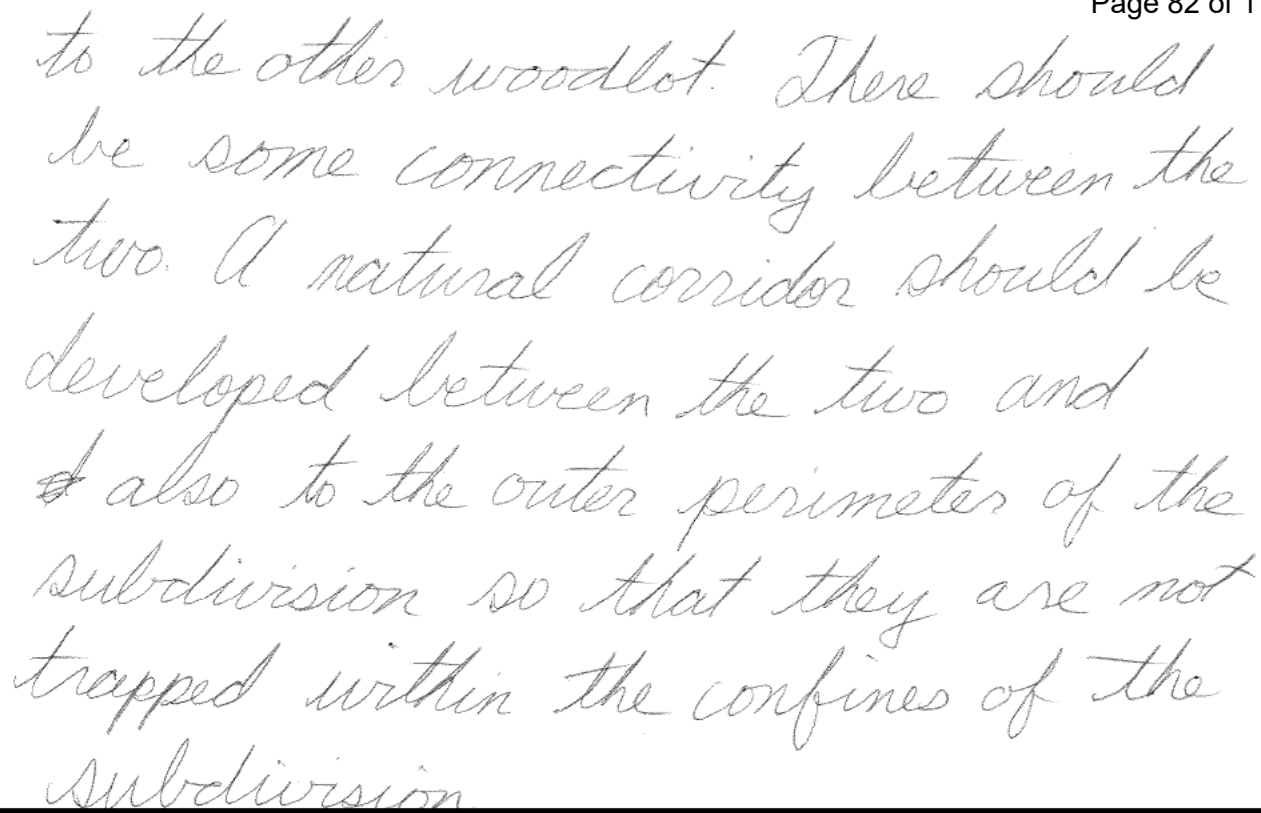 Page 82 of 1
to the other woodlot. There should
be some connectivity between the
two. A natural corridor should be
developed between the two and
also to the outer perimeter of the
subdivision so that they are not
trapped within the confines of the
subdivision